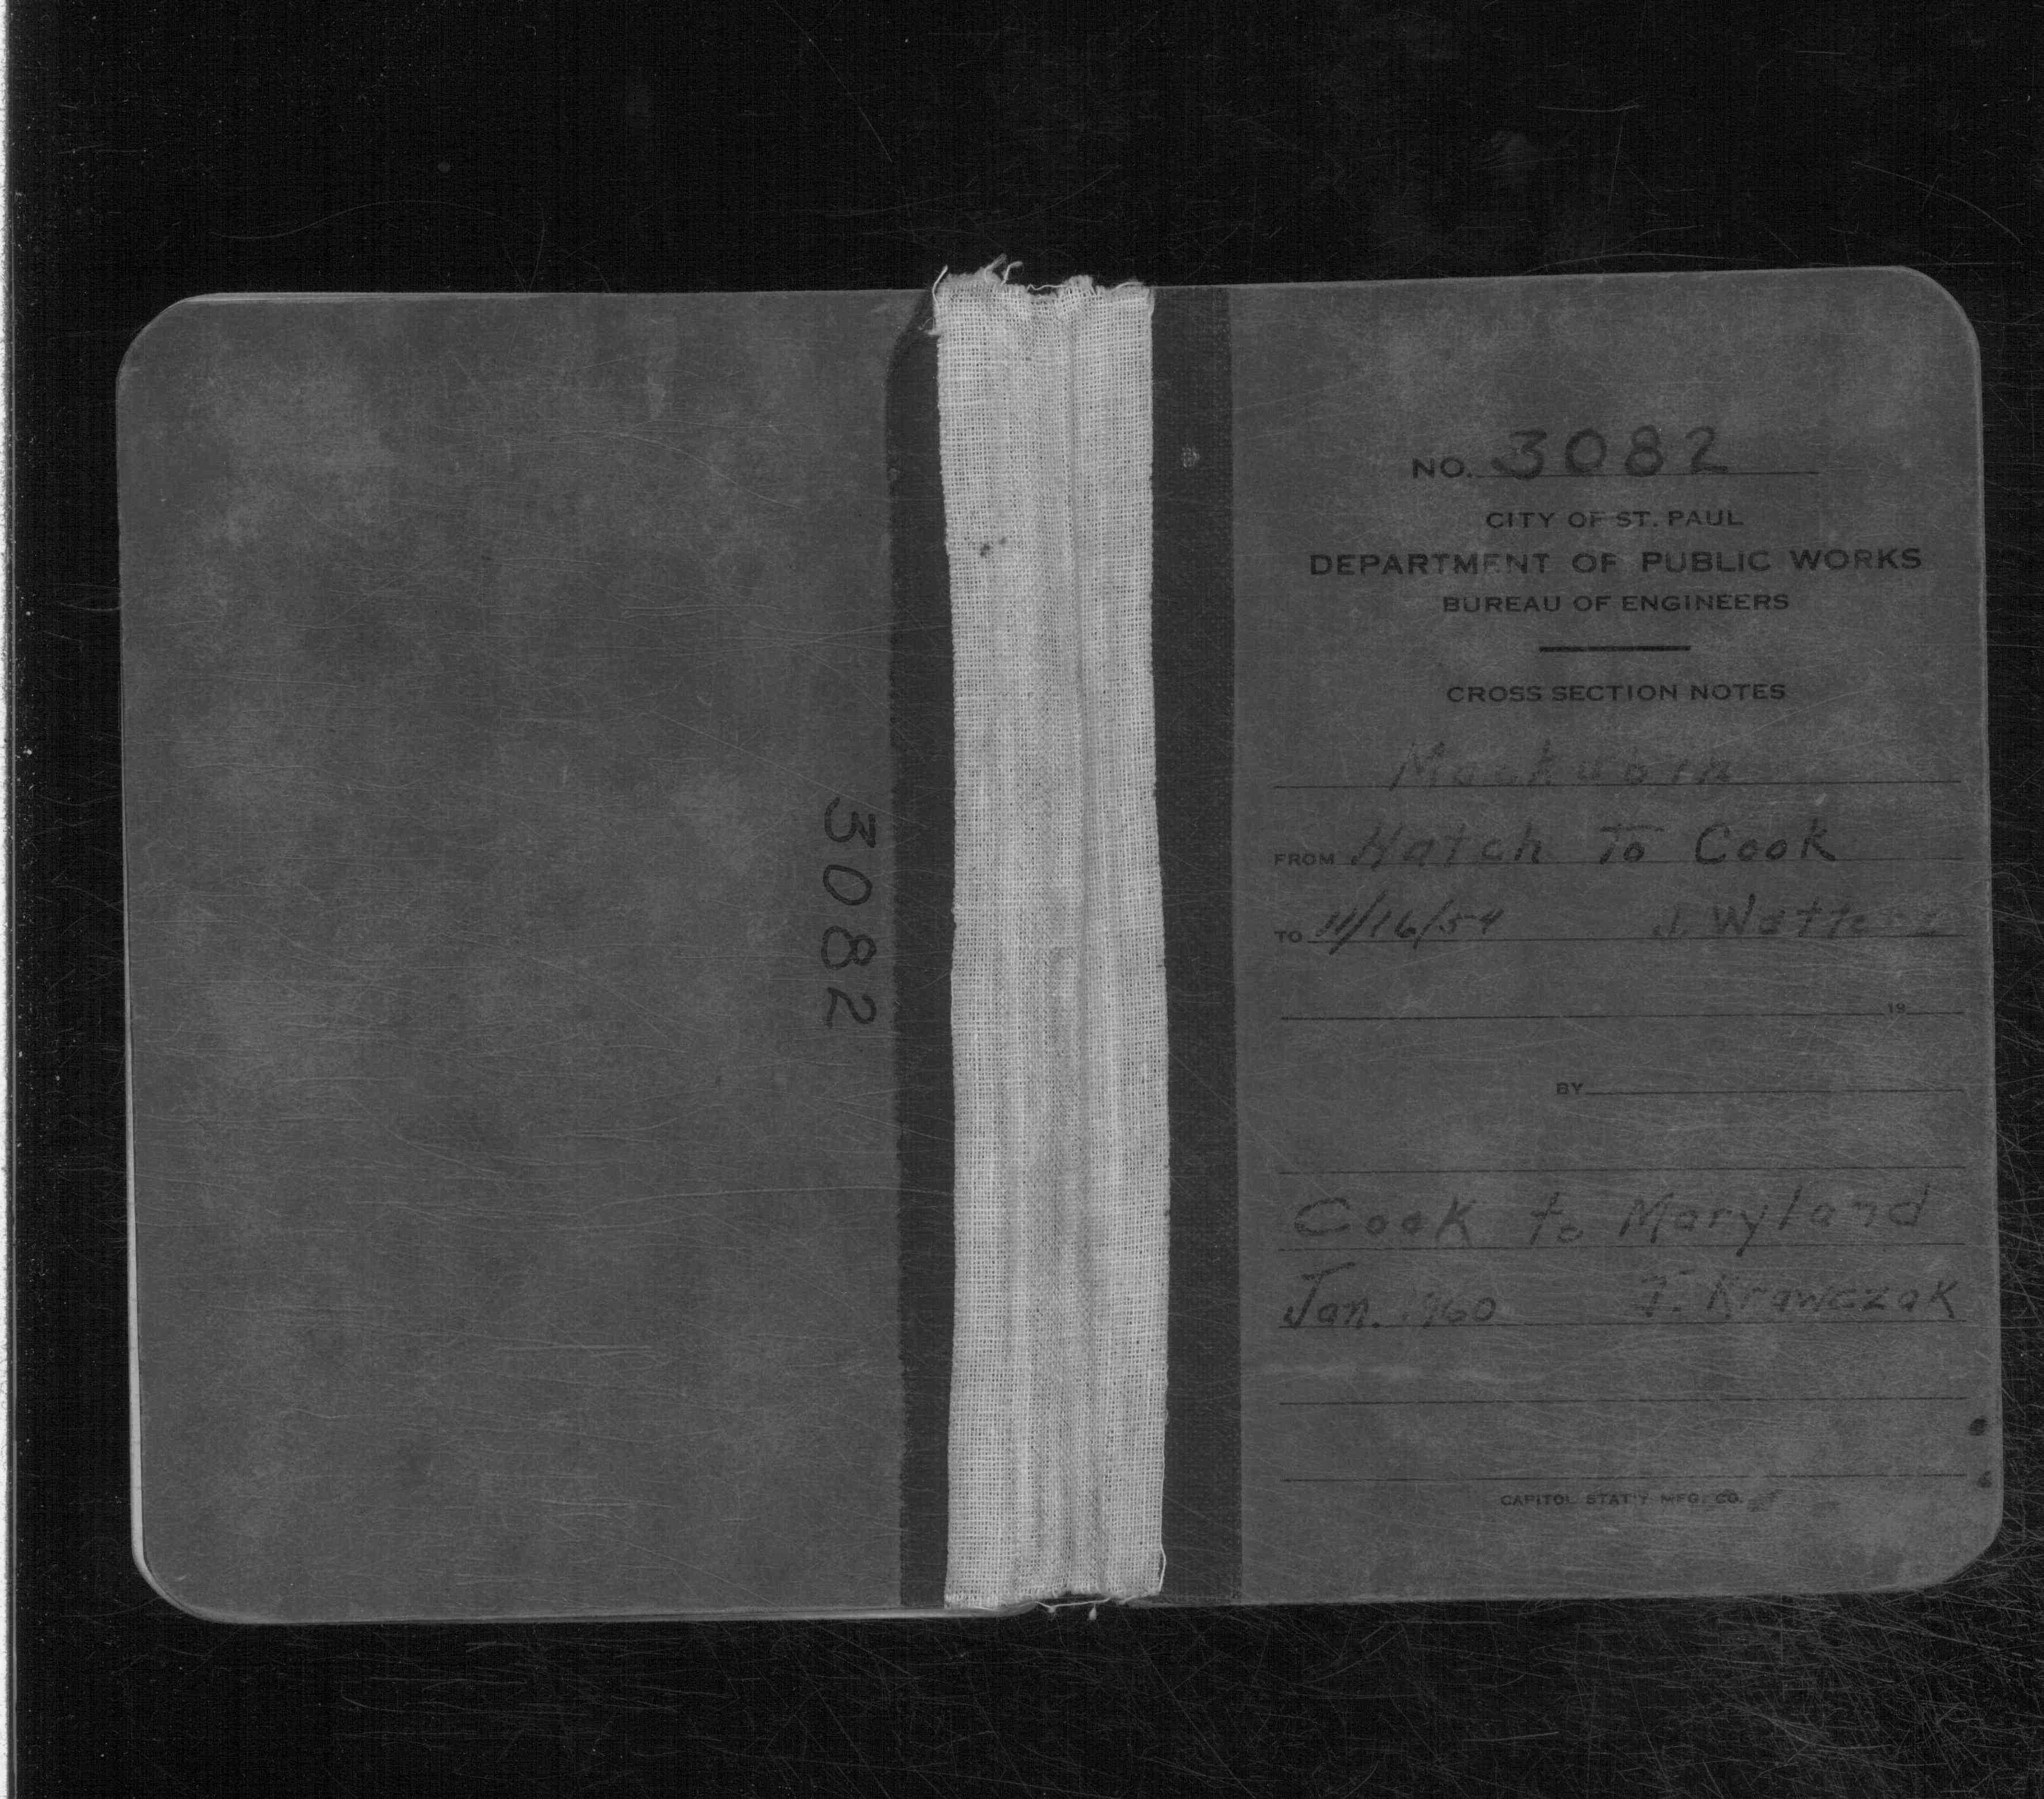 3082
NO. 3082
CITY OF ST. PAUL
DEPARTMENT OF PUBLIC WORKS
BUREAU OF ENGINEERS
CROSS SECTION NOTES
Mackubin
FROM Hatch To Cook
TO 11/16/54 J.
19
BY
Cook to Maryland
Jan. 1960 J. Krawczak
CAPITOL STAT'Y MFG. CO.